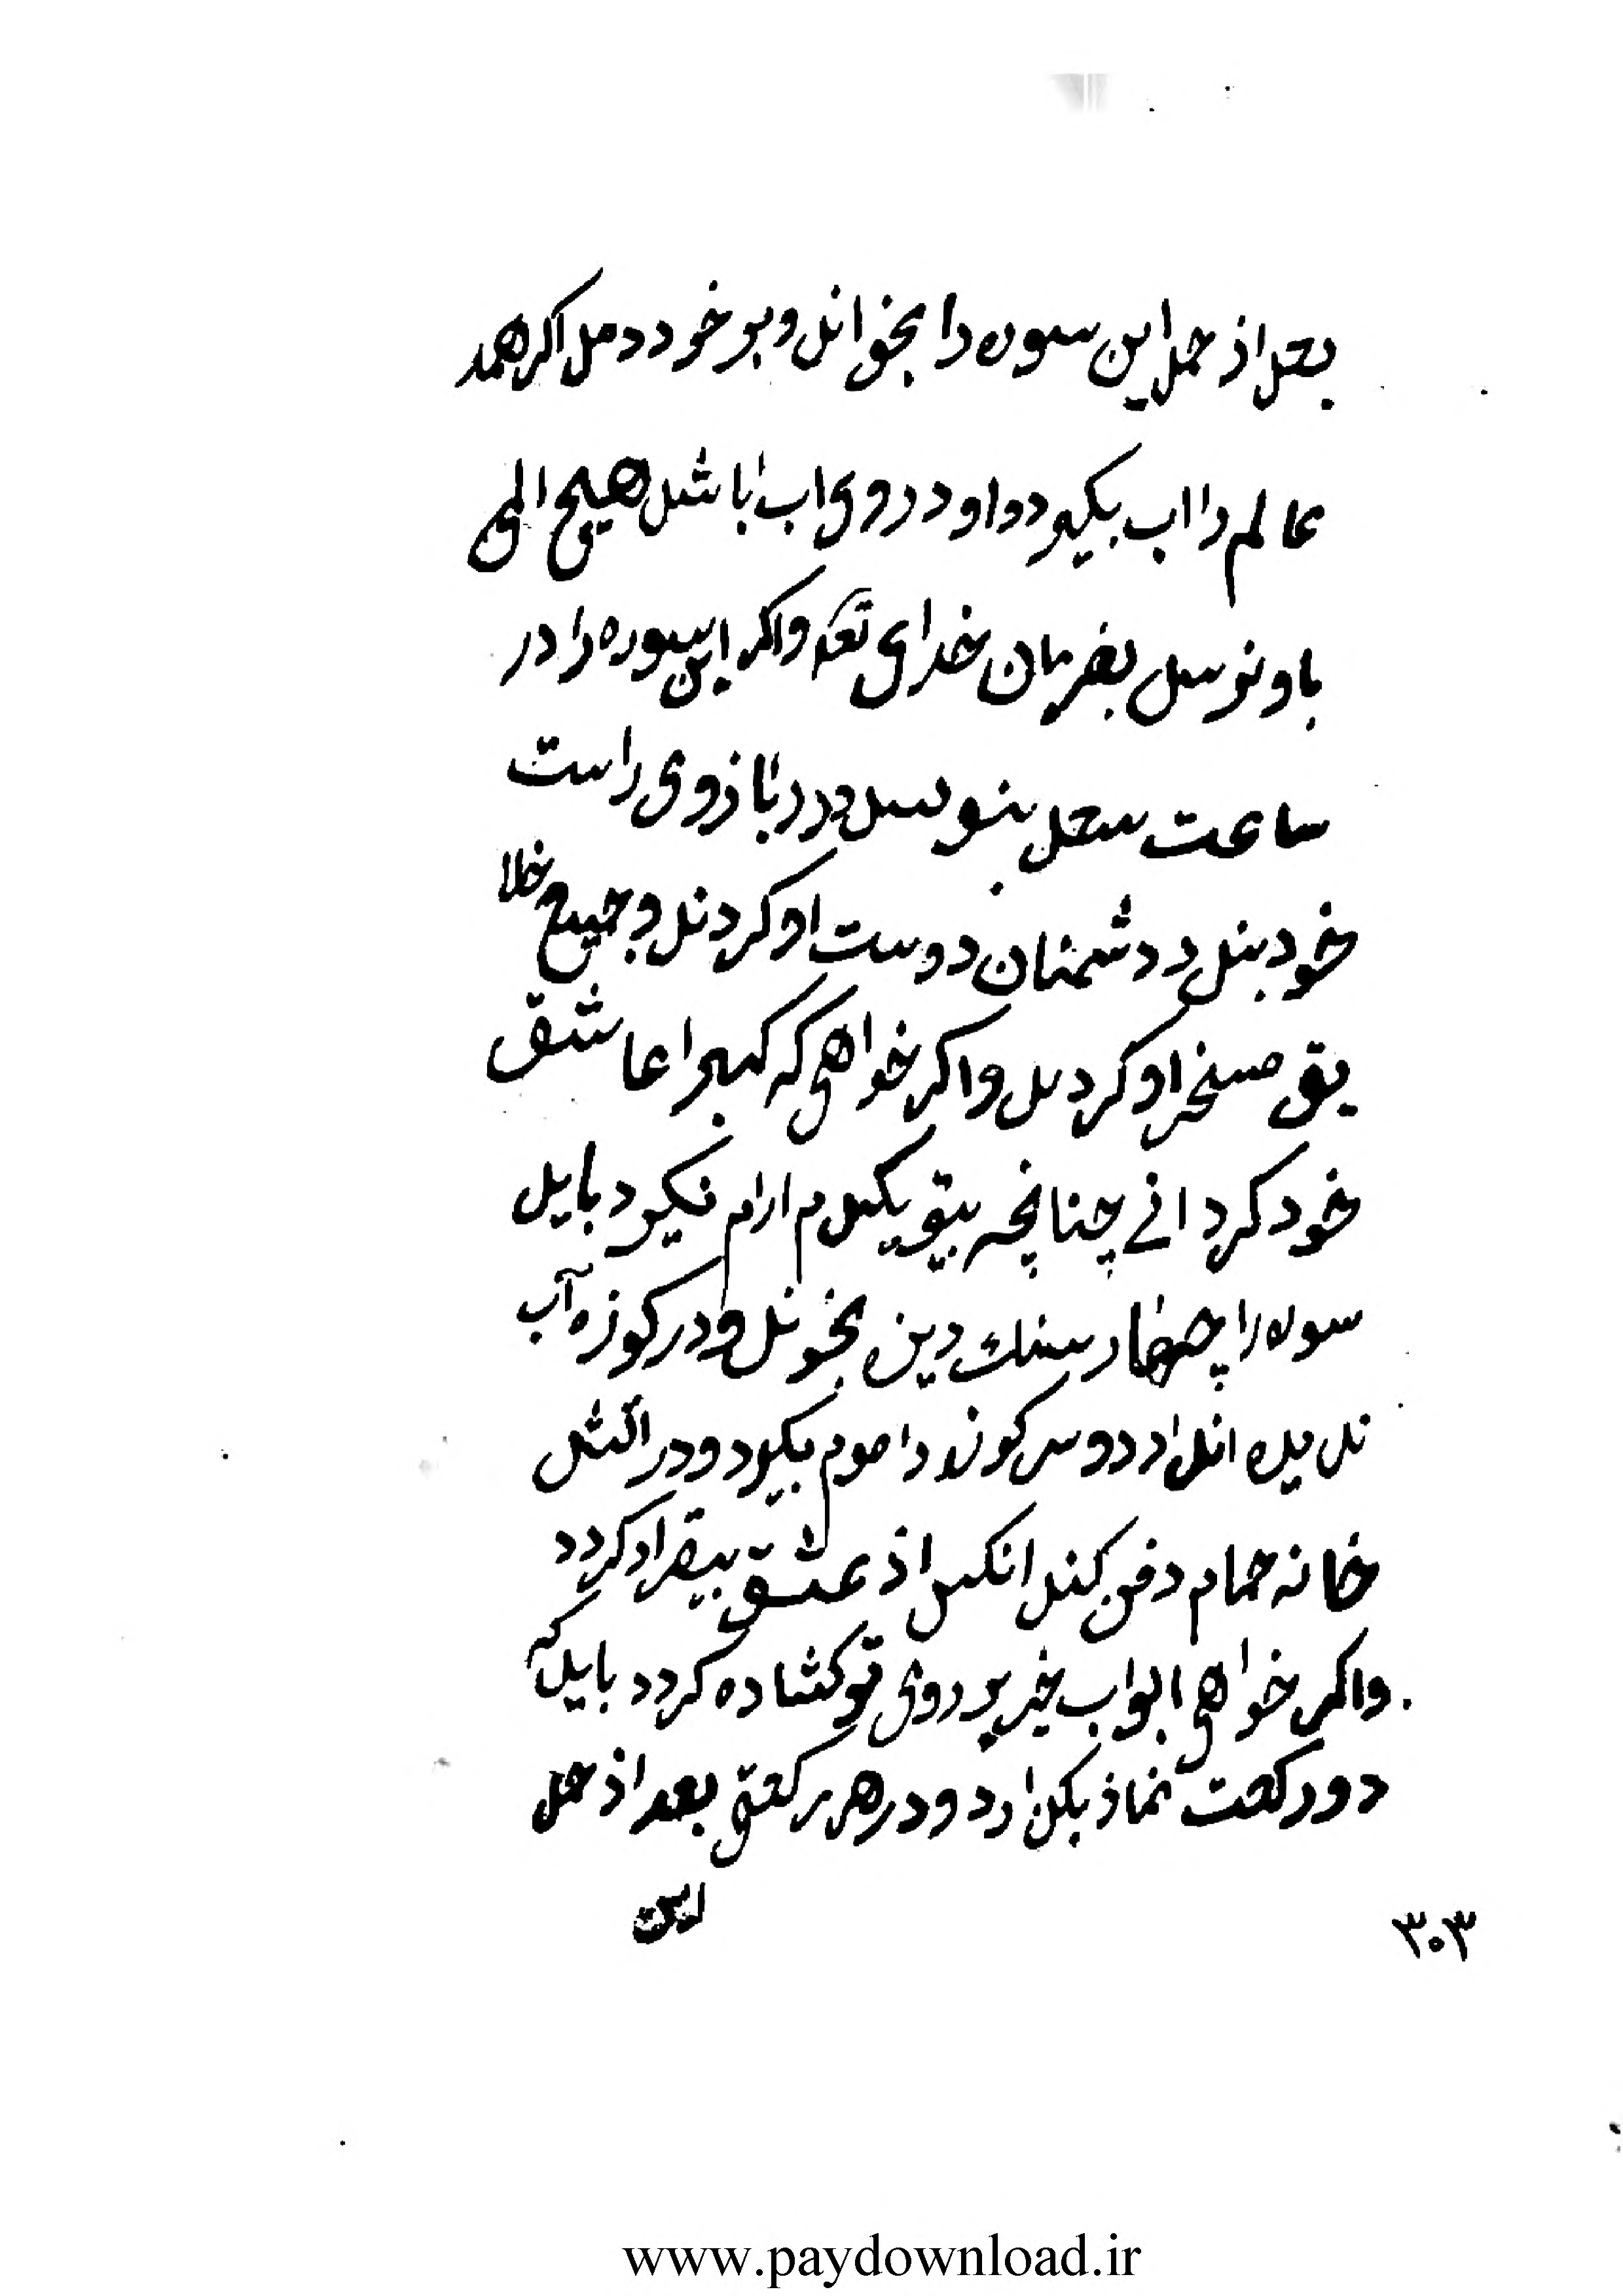 بعد از حمد این سوره را بخواند و بر خود دمد اکر همه
عالم را اب بکیرد و او در روی اب باشد هیچ المی
باو نرسد بفرمان خدای تعه واکر این سوره را در
ساعت سعد بنویسد و در بازوی راست
خود بندد دشمنان دوست او کردند و جمیع خلا
یق مسخر او کردند واکر خواهی که کسی را عاشق
خود کردانے چنانچه بیتو یکدم ارام نکیرد باید
سوره را چهار بخوند و در کوزه آب
ندیده اندازد و سر کوزه را موم بکیرد و در اتش
خانه حمام دفن کند انکس از عشق بیقرار کردد
واکر خواهی ابواب خیر بر روی تو کشاده کردد باید که
دو رکعت نماز بکذارد و در هر رکعتی بعد از حمد
این
۳۰۳
www.paydownload.ir